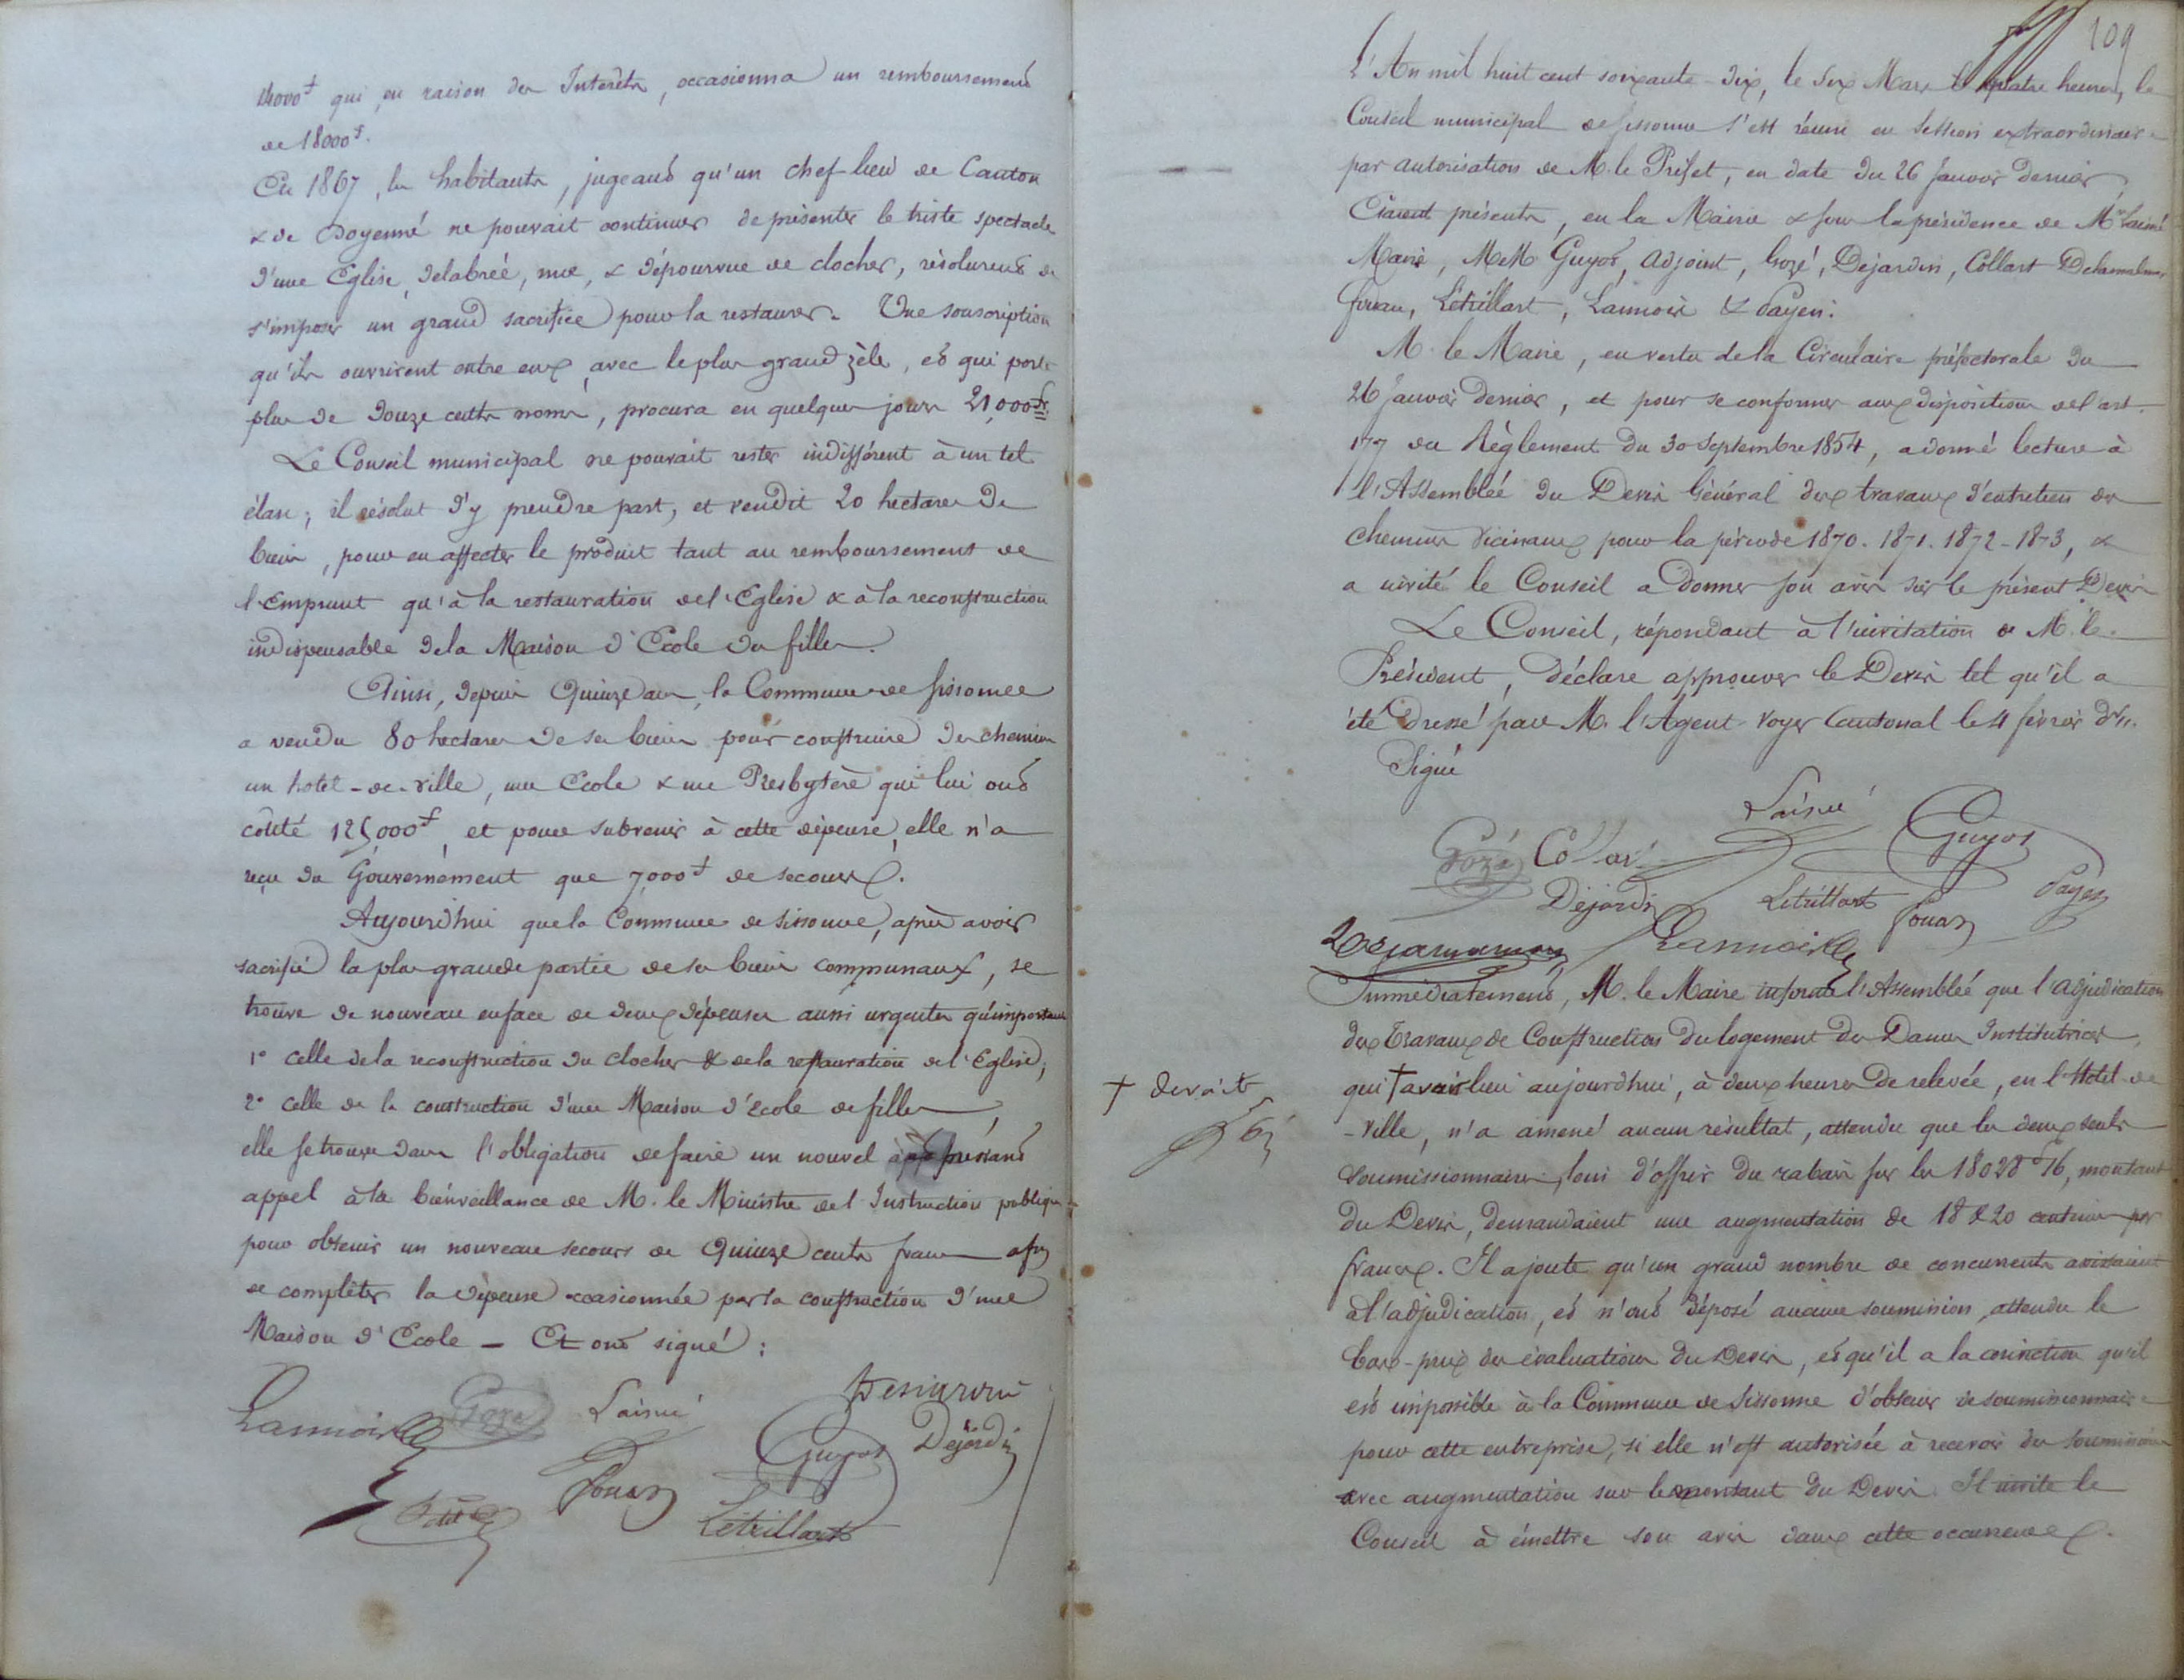 14000f qui, en raison des Interêts, occasionna un remboursement
de 18000f.
En 1867, les habitants, jugeant qu'un chef-lieu de Canton
& de Doyenné ne pouvait continuer de présenter le triste spectacle
d'une Eglise, délabrée, nue, & dépourvue de clocher, résolurent de
s'imposer un grand sacrifice pour la restaurer. Une souscription
qu'ils ouvrirent entre eux, avec le plus grand zèle, et qui porte
plus de douze cents noms, procura en quelques jours 21,000fr
Le Conseil municipal ne pouvait rester indifférent à un tel
élan; il résolut d'y prendre part, et vendit 20 hectares de
biens, pour en affecter le produit tant au remboursement de
l'Emprunt qu'à la restauration de l'Eglise & à la reconstruction
indispensable de la Maison d'Ecole des filles.
Ainsi, depuis Quinze ans, la Commune de Sissonne
a vendu 80 hectares de ses biens pour construire des chemins
un hotel-de-ville, une Ecole & un Presbytère qui lui ont
coûté 125,000f, et pour subvenir à cette dépense, elle n'a
reçu du Gouvernement que 7,000f de secours.
Aujourd'hui que la Commune de Sissonne, après avoir
sacrifié la plus grande partie de ses biens communaux, se
trouve de nouveau en face de deux dépenses aussi urgentes qu'importantes
1° celle de la reconstruction du clocher & de la restauration de l'Eglise;
2° celle de la construction d'une Maison d'école de filles,
elle se trouve dans l'obligation de faire un nouvel pressant
appel à la bienveillance de M. le Ministre de l'Instruction publique
pour obtenir un nouveau secours de Quinze cents francs afin
de compléter la dépense occasionnée par la construction d'une
Maison d'Ecole — Et ont signé:
Desjardin
Lannois Gozé Lainé
Guyot Déjardin
Fouan
Petit Létrillart
109
L'An mil huit cent soixante-dix, le dix Mars à quatre heures, le
Conseil municipal de Sissonne s'est réuni en Session extraordinaire
par autorisation de M. le Préfet, en date du 26 Janvier dernier,
Etaient présents, en la Mairie & sous la présidence de Mr Lainé
Maire, MM. Guyot, adjoint, Gozé, Dejardin, Collart
Fouan, Létrillart, Lannois & Payen:
M. le Maire, en vertu de la Circulaire préfectorale du
26 Janvier dernier, et pour se conformer aux dispositions de l'art.
177 du Règlement du 30 Septembre 1854, a donné lecture à
l'Assemblée du Devis Général des travaux d'entretien des
chemins vicinaux pour la période 1870. 1871. 1872-1873, &
a invité le Conseil a donner son avis sur le présent Devis
Le Conseil, répondant à l'invitation de M. le
Président, déclare approuver le Devis tel qu'il a
été dressé par M. l'Agent-voyer Cantonal le 4 février dr.
Signé
Lainé
Gozé Collart Guyot
Déjardin Létrillart Fouan Payen
Lannois
Immédiatement, M. le Maire informe l'Assemblée que l'adjudication
des Travaux de Construction du logement des Dames Institutrices,
† devait
qui † avoir lieu aujourd'hui, à deux heures de relevée, en l'Hotel-de
-ville, n'a amené aucun résultat, attendu que les deux seuls
soumissionnaires, loin d'offrir du rabais sur les 18028f 76, montant
du Devis, demandaient une augmentation de 18 & 20 centimes par
francs. Il ajoute qu'un grand nombre de concurrents assistaient
à l'adjudication, et n'ont déposé aucune soumission, attendu le
bas-prix des évaluations du Devis, et qu'il a la conviction qu'il
est impossible à la Commune de Sissonne d'obtenir de soumissionnaire
pour cette entreprise, si elle n'est autorisée à recevoir des soumissions
avec augmentation sur le montant du Devis. Il invite le
Conseil à émettre son avis dans cette occurrence.